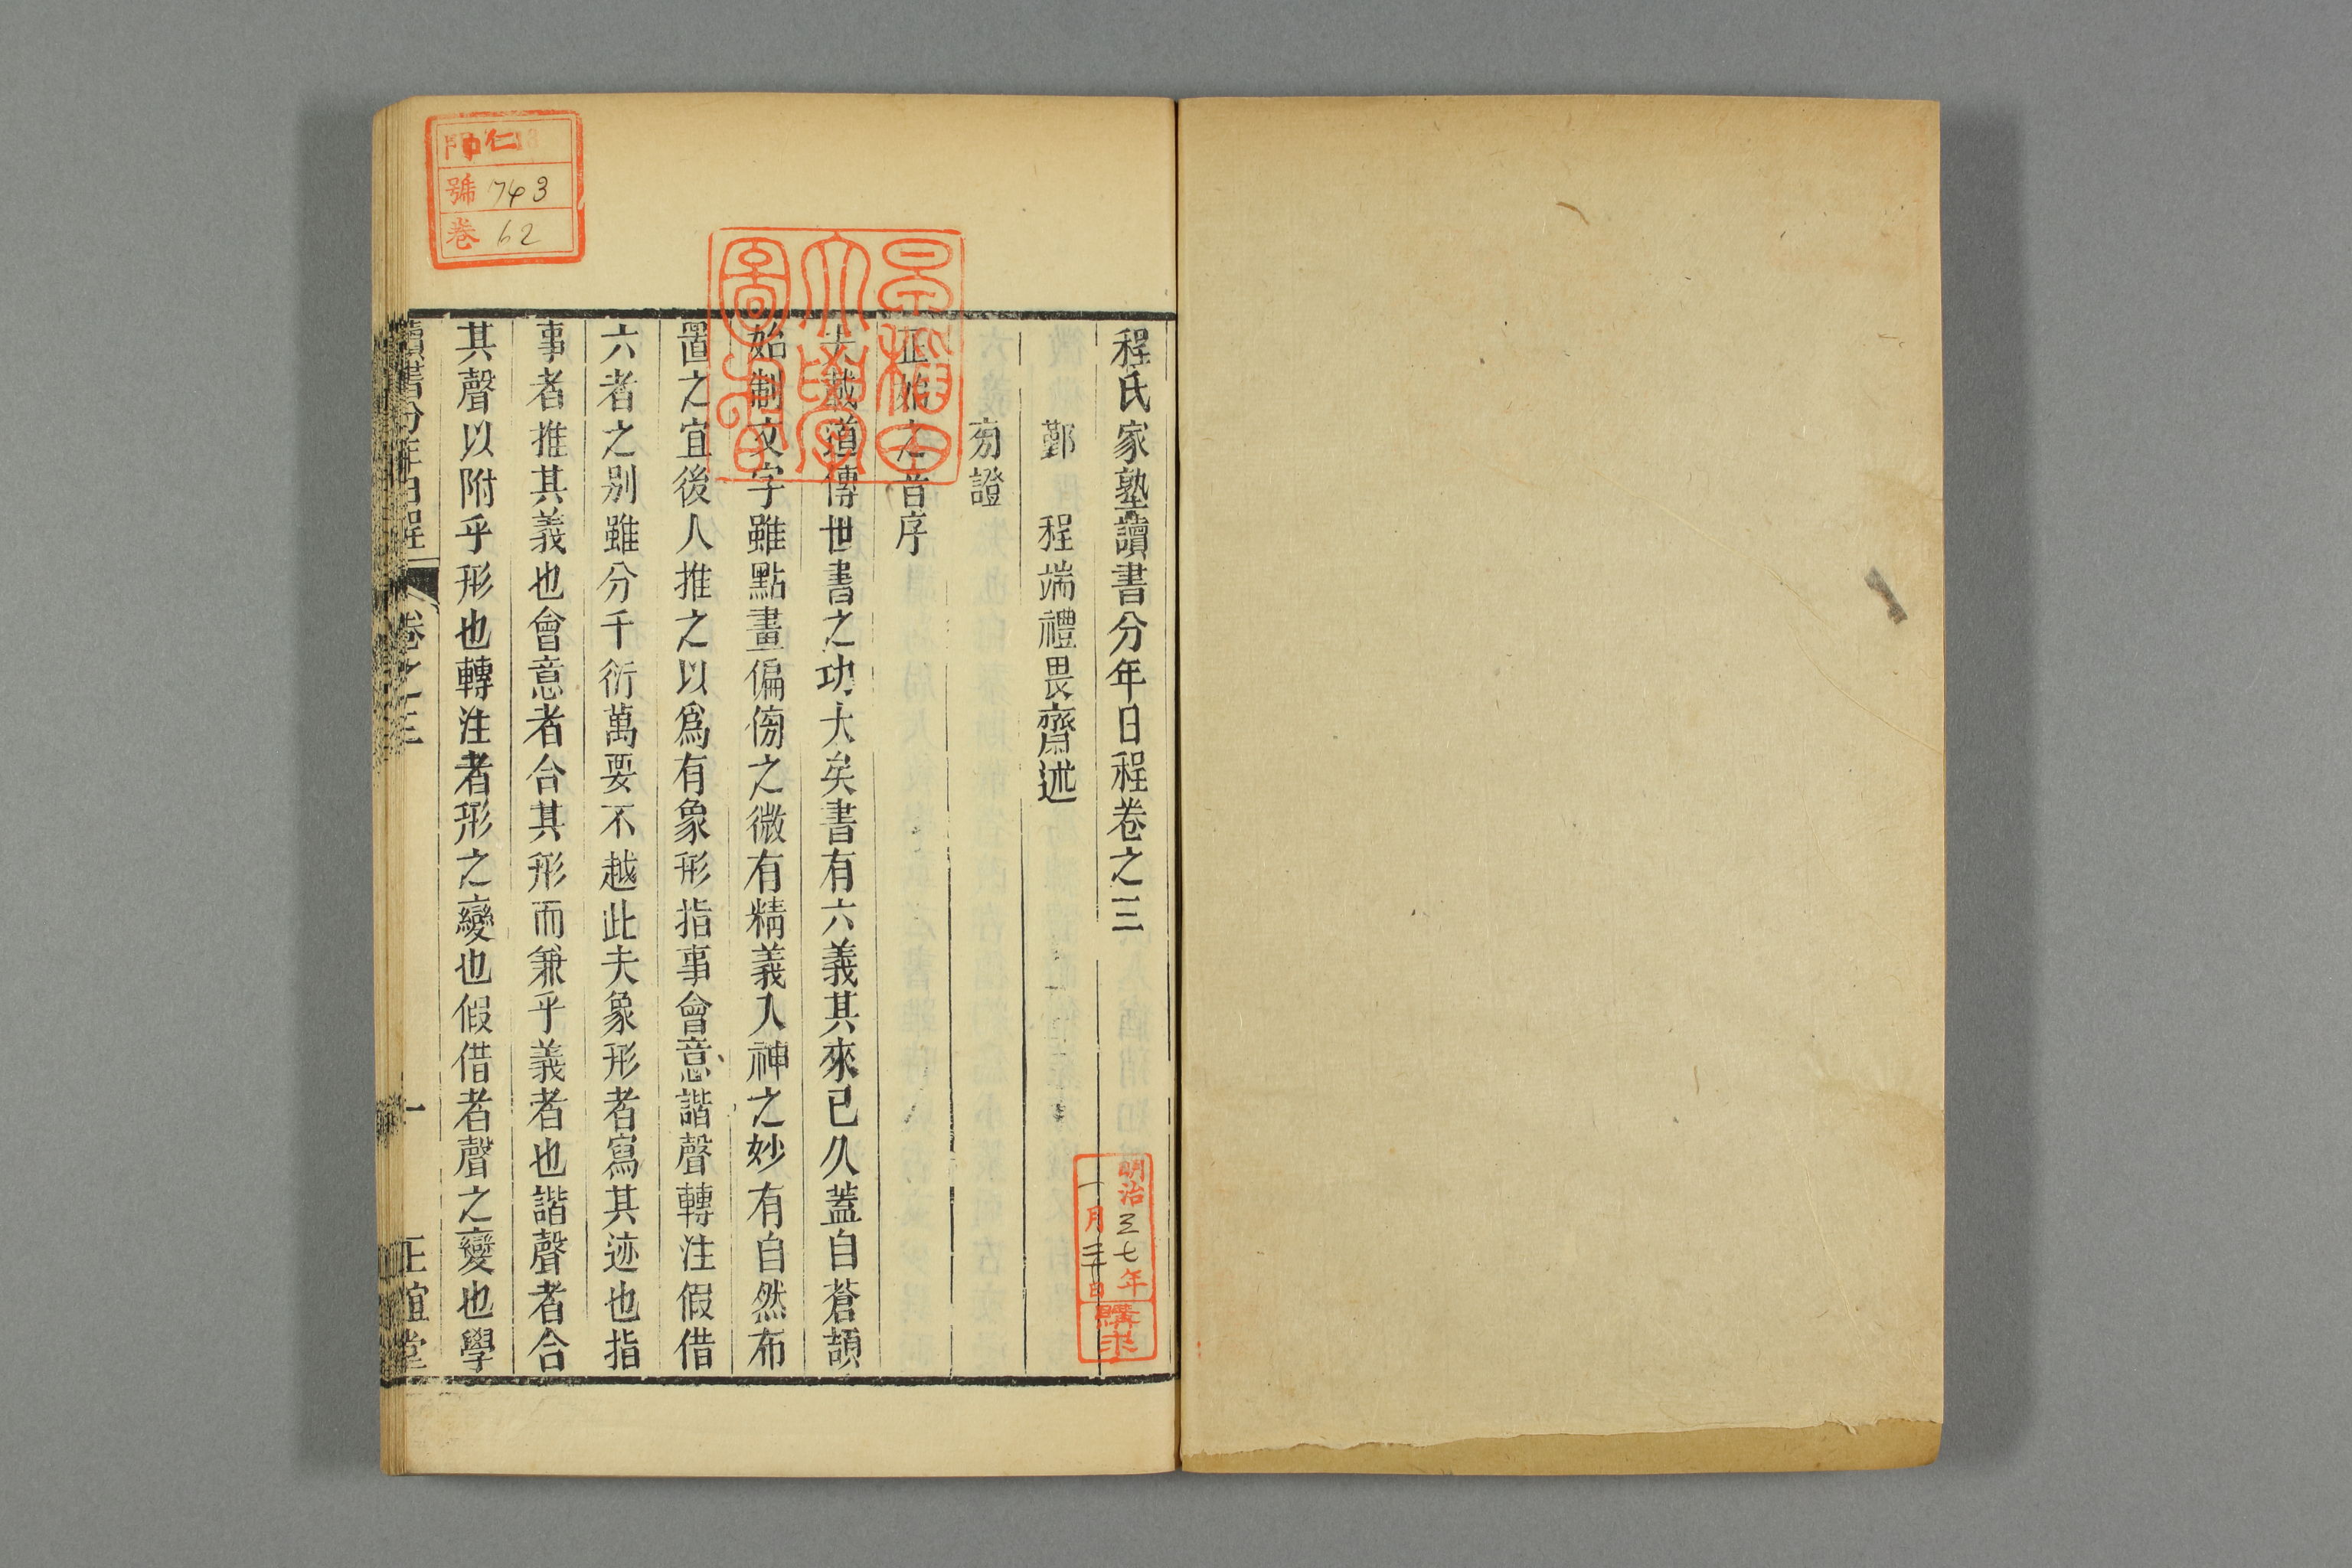 程氏家塾讀書分年日程卷之三
鄞 程端禮畏齋述
㫄證
正始之音序
夫載道傳世書之功大矣書有六義其來已久蓋自蒼頡
始制文字雖點畫偏傍之微有精義入神之妙有自然布
置之宜後人推之以爲有象形指事會意諧聲轉注假借
六者之别雖分千衍萬要不越此夫象形者寫其迹也指
事者推其義也會意者合其形而兼乎義者也諧聲者合
其聲以附乎形也轉注者形之變也假借者聲之變也學
讀書分年日程 卷之三 一 正誼堂
早稻田
大學
圖書
門 仁
號 743
卷 62
明治三七年
一月
日
購求